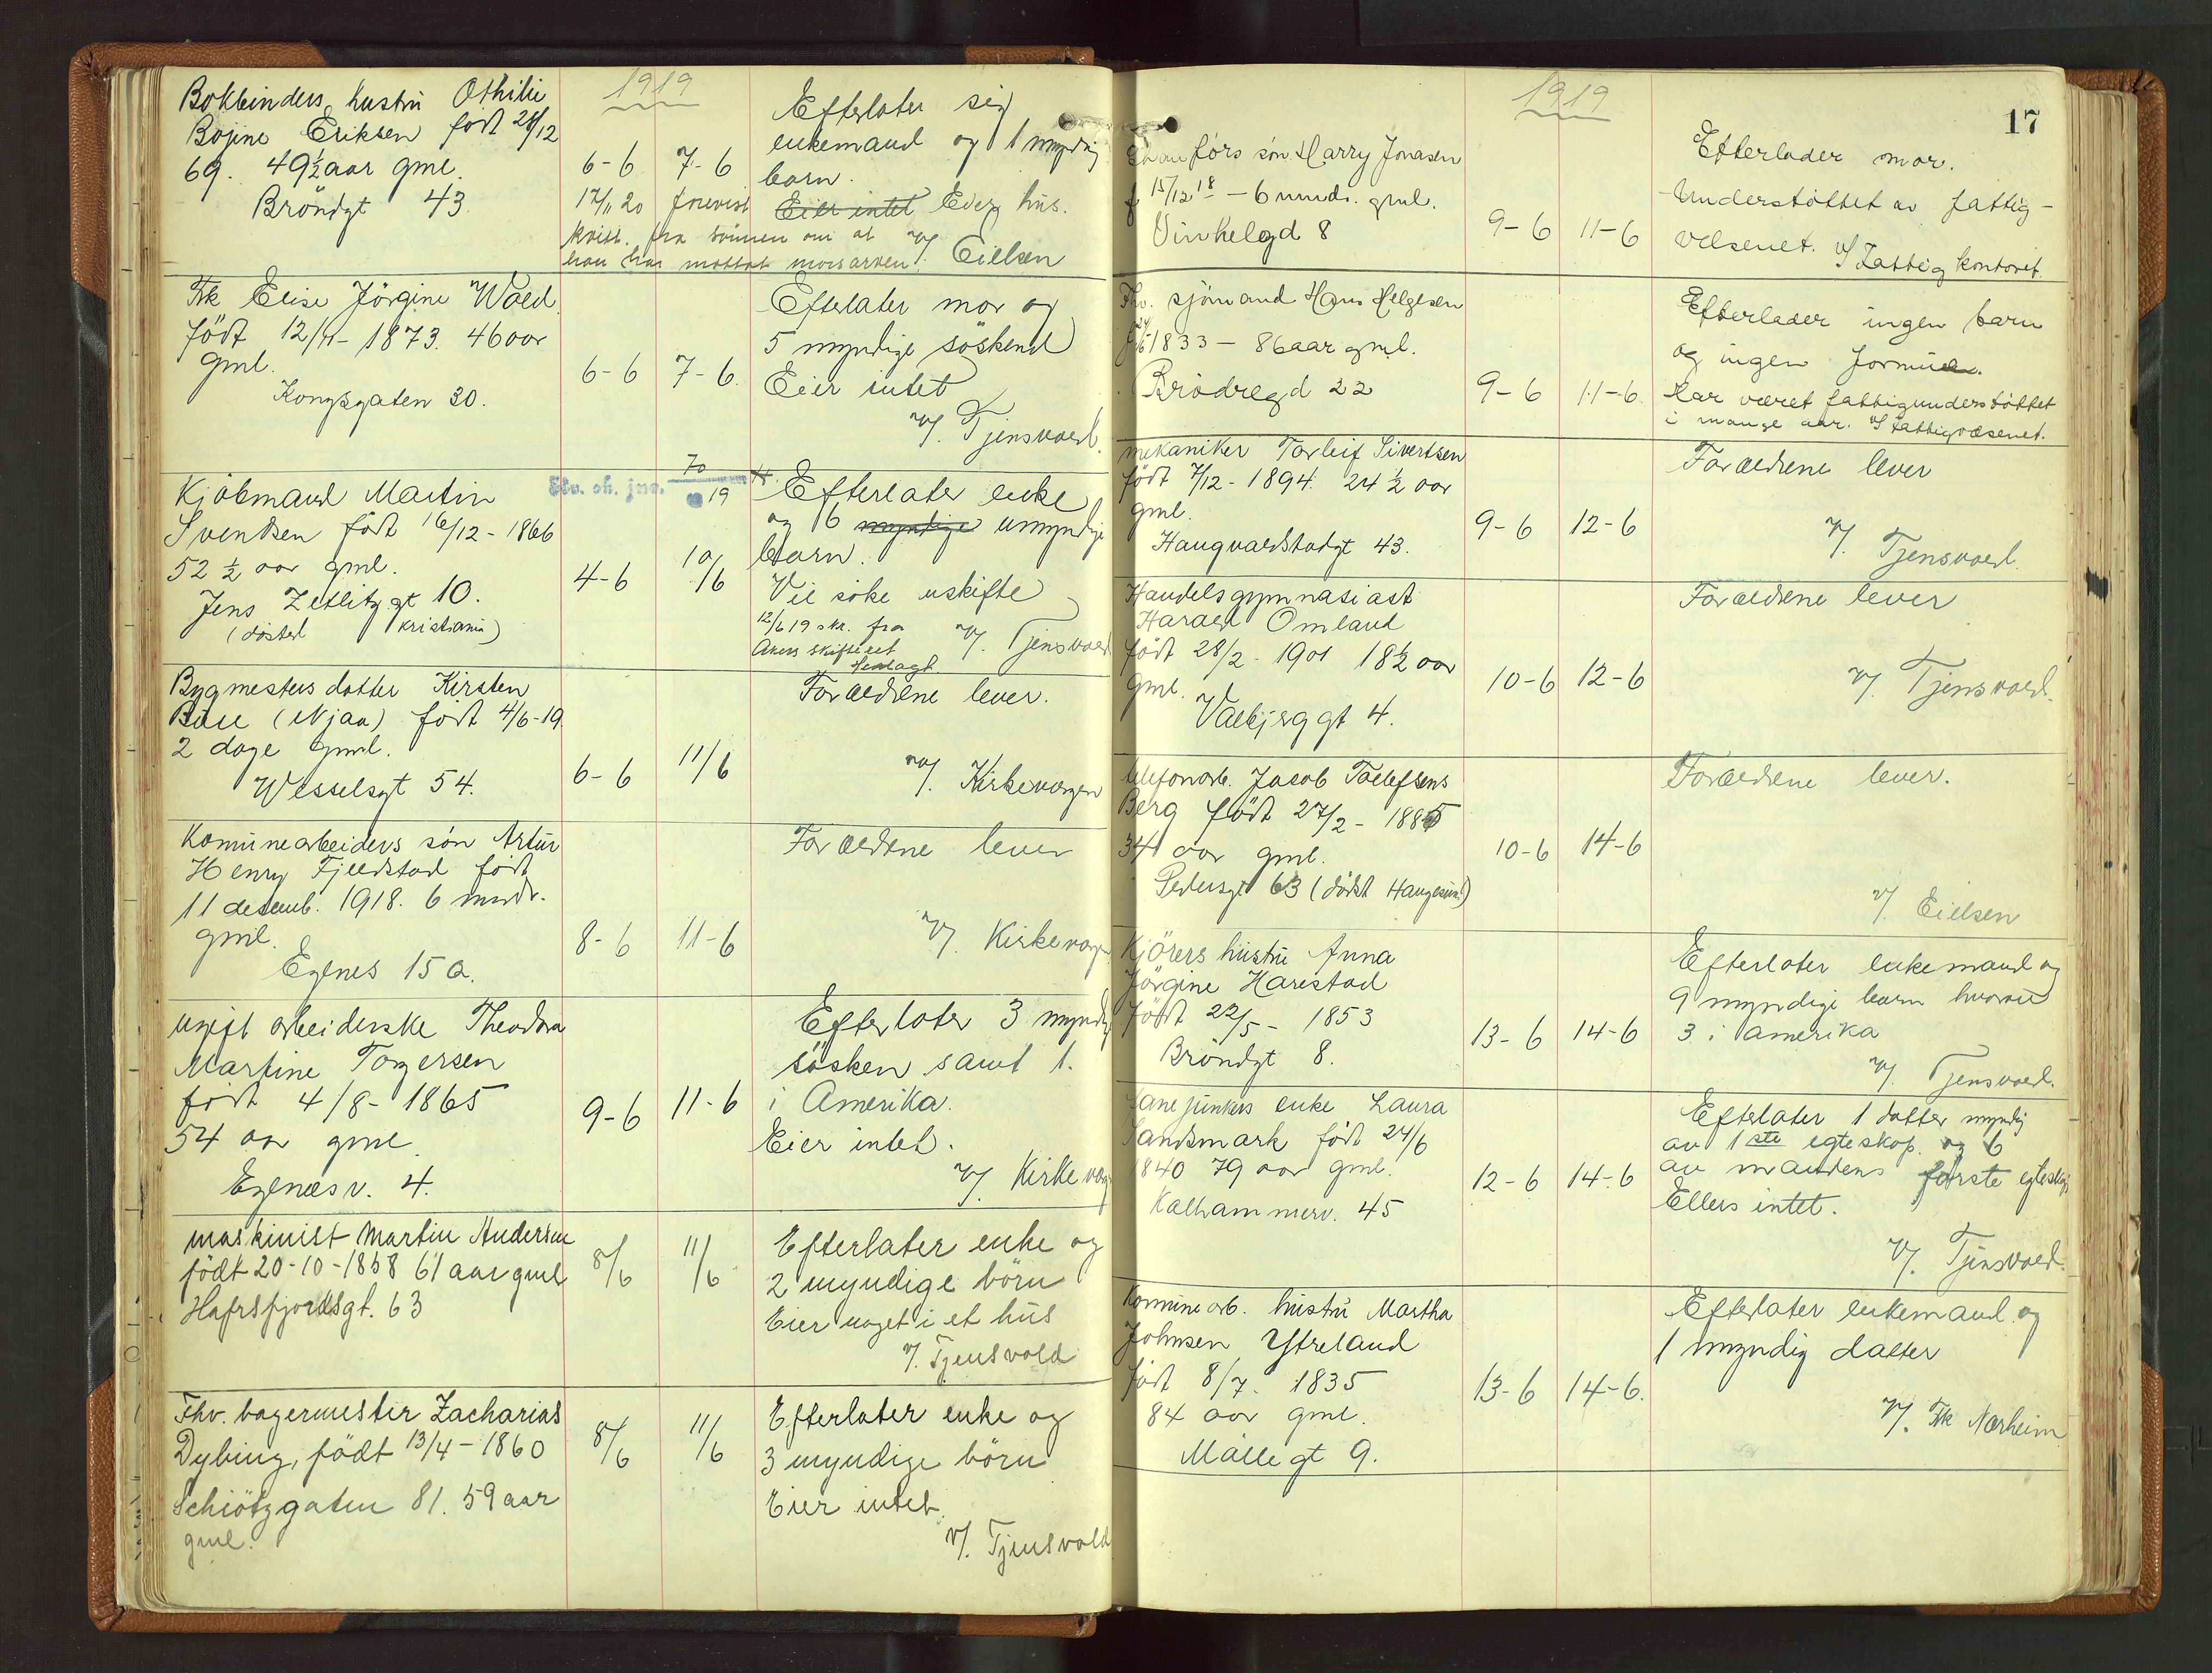 1919
Bokbinders hustru Othilie
Bojine Eriksen født 28/12
69. 49½ aar gml.
Bröndgt 43
6-6 7-6
17/11 20 forevist
kvitt. fra sönnen om at
han har mottat morsarven.
Efterlater sig
enkemand og 1 myndig
barn.
Eier intet Eier hus.
v/. Eielsen
Frk Elise Jörgine Wold
födt 12/4- 1873. 46 aar
gml.
Kongsgaten 30.
6-6 7-6.
Efterlater mor og
5 myndige söskend
Eier intet
v/. Tjensvold.
Kjöbmand Martin
Svendsen födt 16/12 - 1866
52 ½ aar gml.
Jens Zetlitzgt 10.
(död Kristiania)
4-6 10/6
70
19
Efterlater enke
og 6 myndige umyndige
barn.
Vil söke uskifte
12/6 19 skr. fra
Akers skifteret
fremlagt
v/. Tjensvold
Bygmesters datter Kirsten
Bue (Njaa) födt 4/6-19.
2 dage gml.
Wesselsgt 54.
6-6 11/6
Forældrene lever.
v/. Kirkevergen
Komunearbeiders sön Artur
Henry Fjeldstad födt
11 desemb. 1918. 6 mndr.
gml.
Egenes 15 a.
8-6 11-6
Forældrene lever
v/. Kirkeverge
ugift arbeiderske Theodora
Martine Torgersen
födt 4/8- 1865
54 aar gml.
Egenesv. 4.
9-6 11-6
Efterlater 3 myndig
sösken samt 1.
i Amerika.
Eier intet.
v/. Kirkeverg
maskinist Martin Andersen
födt 20-10-1858 61 aar gml
Hafrsfjordsgt. 63
8/6 11/6
Efterlater enke og
2 myndige börn
Eier noget i et hus
v/. Tjensvold
Fhv. bagermester Zacharias
Dybing, födt 13/4 - 1860
Schiötzgaten 81. 59 aar
gml.
8/6 11/6
Efterlater enke og
3 myndige börn
Eier intet.
v/. Tjensvold
17
1919
sön Harry Jonasen
f 15/12 18 - 6 mndr. gml.
Vinkelgd 8
9-6 11-6
Efterlader mor.
Understöttet av fattig-
væsenet. v/ Fattigkontoret.
Fhv. sjömand Hans Helgesen
1833 - 86 aar gml.
Brödregd 22
9-6 11-6
Efterlader ingen barn
og ingen formue.
Har været fattigunderstöttet
i mange aar. v/ Fattigvæsenet.
mekaniker Torleif Sivertsen
födt 7/12 - 1894. 24 ½ aar
gml.
Haugvaldstadgt 43.
9-6 12-6
Forældrene lever
v/. Tjensvold.
Handelsgymnasiast
Harald Omland
födt 28/2 - 1901 18½ aar
gml.
Valbjerggt 4.
10-6 12-6
Forældrene lever
v/. Tjensvold.
telefonarb. Jacob Tollefsens
Berg födt 27/2 - 1885
34 aar gml.
Pedersgt 63 (död Haugesund)
10-6 14-6
Forældrene lever.
v/. Eielsen
Kjörers hustru Anna
Jörgine Harestad
födt 22/5 - 1853
Bröndgt 8.
13-6 14-6
Efterlater enkemand og
9 myndige barn hvorav
3 i Amerika
v/. Tjensvold.
Lanejunkers enke Laura
Sandsmark födt 24/6
1840 79 aar gml.
Kalhammerv. 45
12-6 14-6
Efterlater 1 datter myndig
av 1ste egteskap. og 6
av mandens förste egteskap.
Ellers intet.
v/. Tjensvold.
Komunearb. hustru Martha
Johnsen Ytreland
födt 8/7. 1835
84 aar gml.
Möllegt 9.
13-6 14-6.
Efterlater enkemand og
1 myndig datter
v/. Frk Nærheim